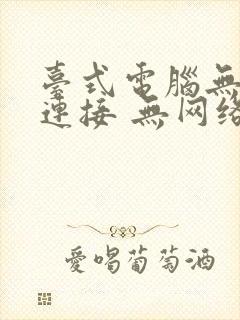 臺式電腦無
連接 無网络
愛喝葡萄酒